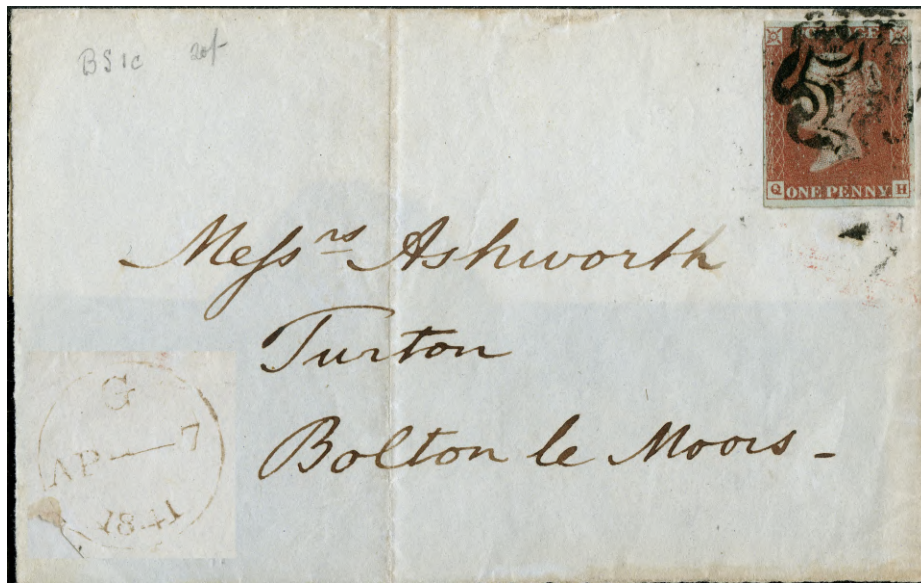 BS1c 20/-
POSTAGE
Q ONE PENNY H
Messrs Ashworth
Turton
Bolton le Moors -
G
AP — 7
1841